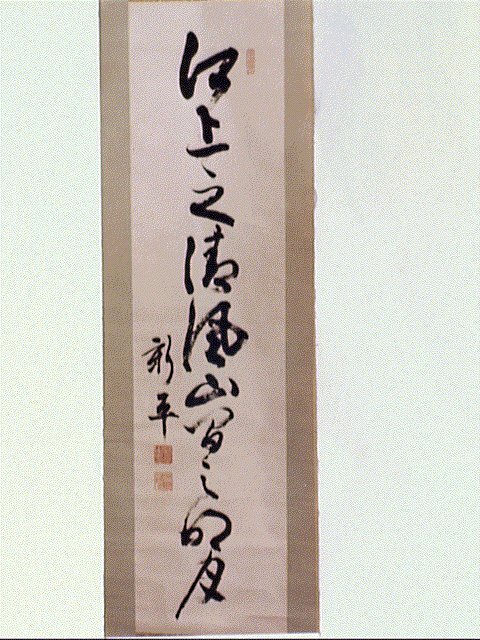 江上之清風山間之明月
新平